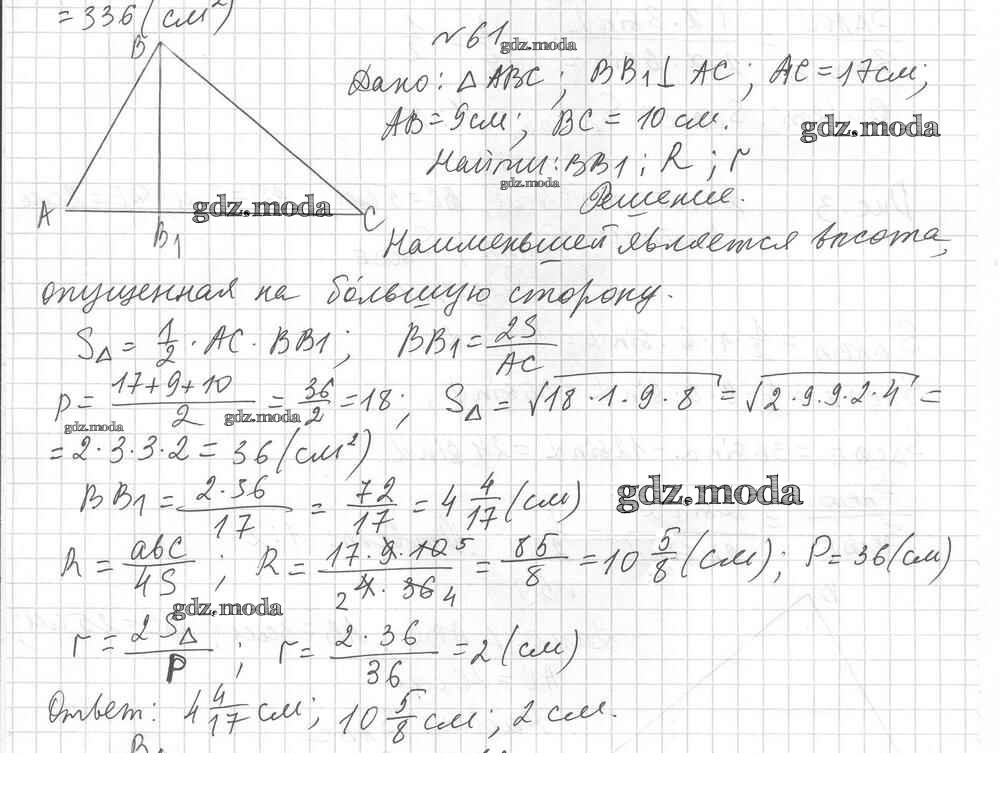 = 336 (см²)
№ 61
gdz.moda
Дано: △ ABC ; BB₁ ⊥ AC ; AC = 17 см;
AB = 9 см; BC = 10 см.
gdz.moda
Найти: BB₁ ; R ; r
gdz.moda
Решение.
B
A
gdz.moda
C
B₁
Наименьшей является высота,
опущенная на бóльшую сторону.
S△ = 1/2 · AC · BB₁ ; BB₁ = 2S/AC
p = (17+9+10)/2 = 36/2 = 18 ; S△ = √(18 · 1 · 9 · 8) = √(2 · 9 · 9 · 2 · 4) =
gdz.moda gdz.moda
= 2 · 3 · 3 · 2 = 36 (см²)
BB₁ = 2 · 36/17 = 72/17 = 4 4/17 (см)
gdz.moda
R = abc/4S ; R = 17 · 9 · 10 5/2 4 · 36 4 = 85/8 = 10 5/8 (см) ; P = 36 (см)
gdz.moda
r = 2S△/P ; r = 2 · 36/36 = 2 (см)
Ответ: 4 4/17 см; 10 5/8 см; 2 см.